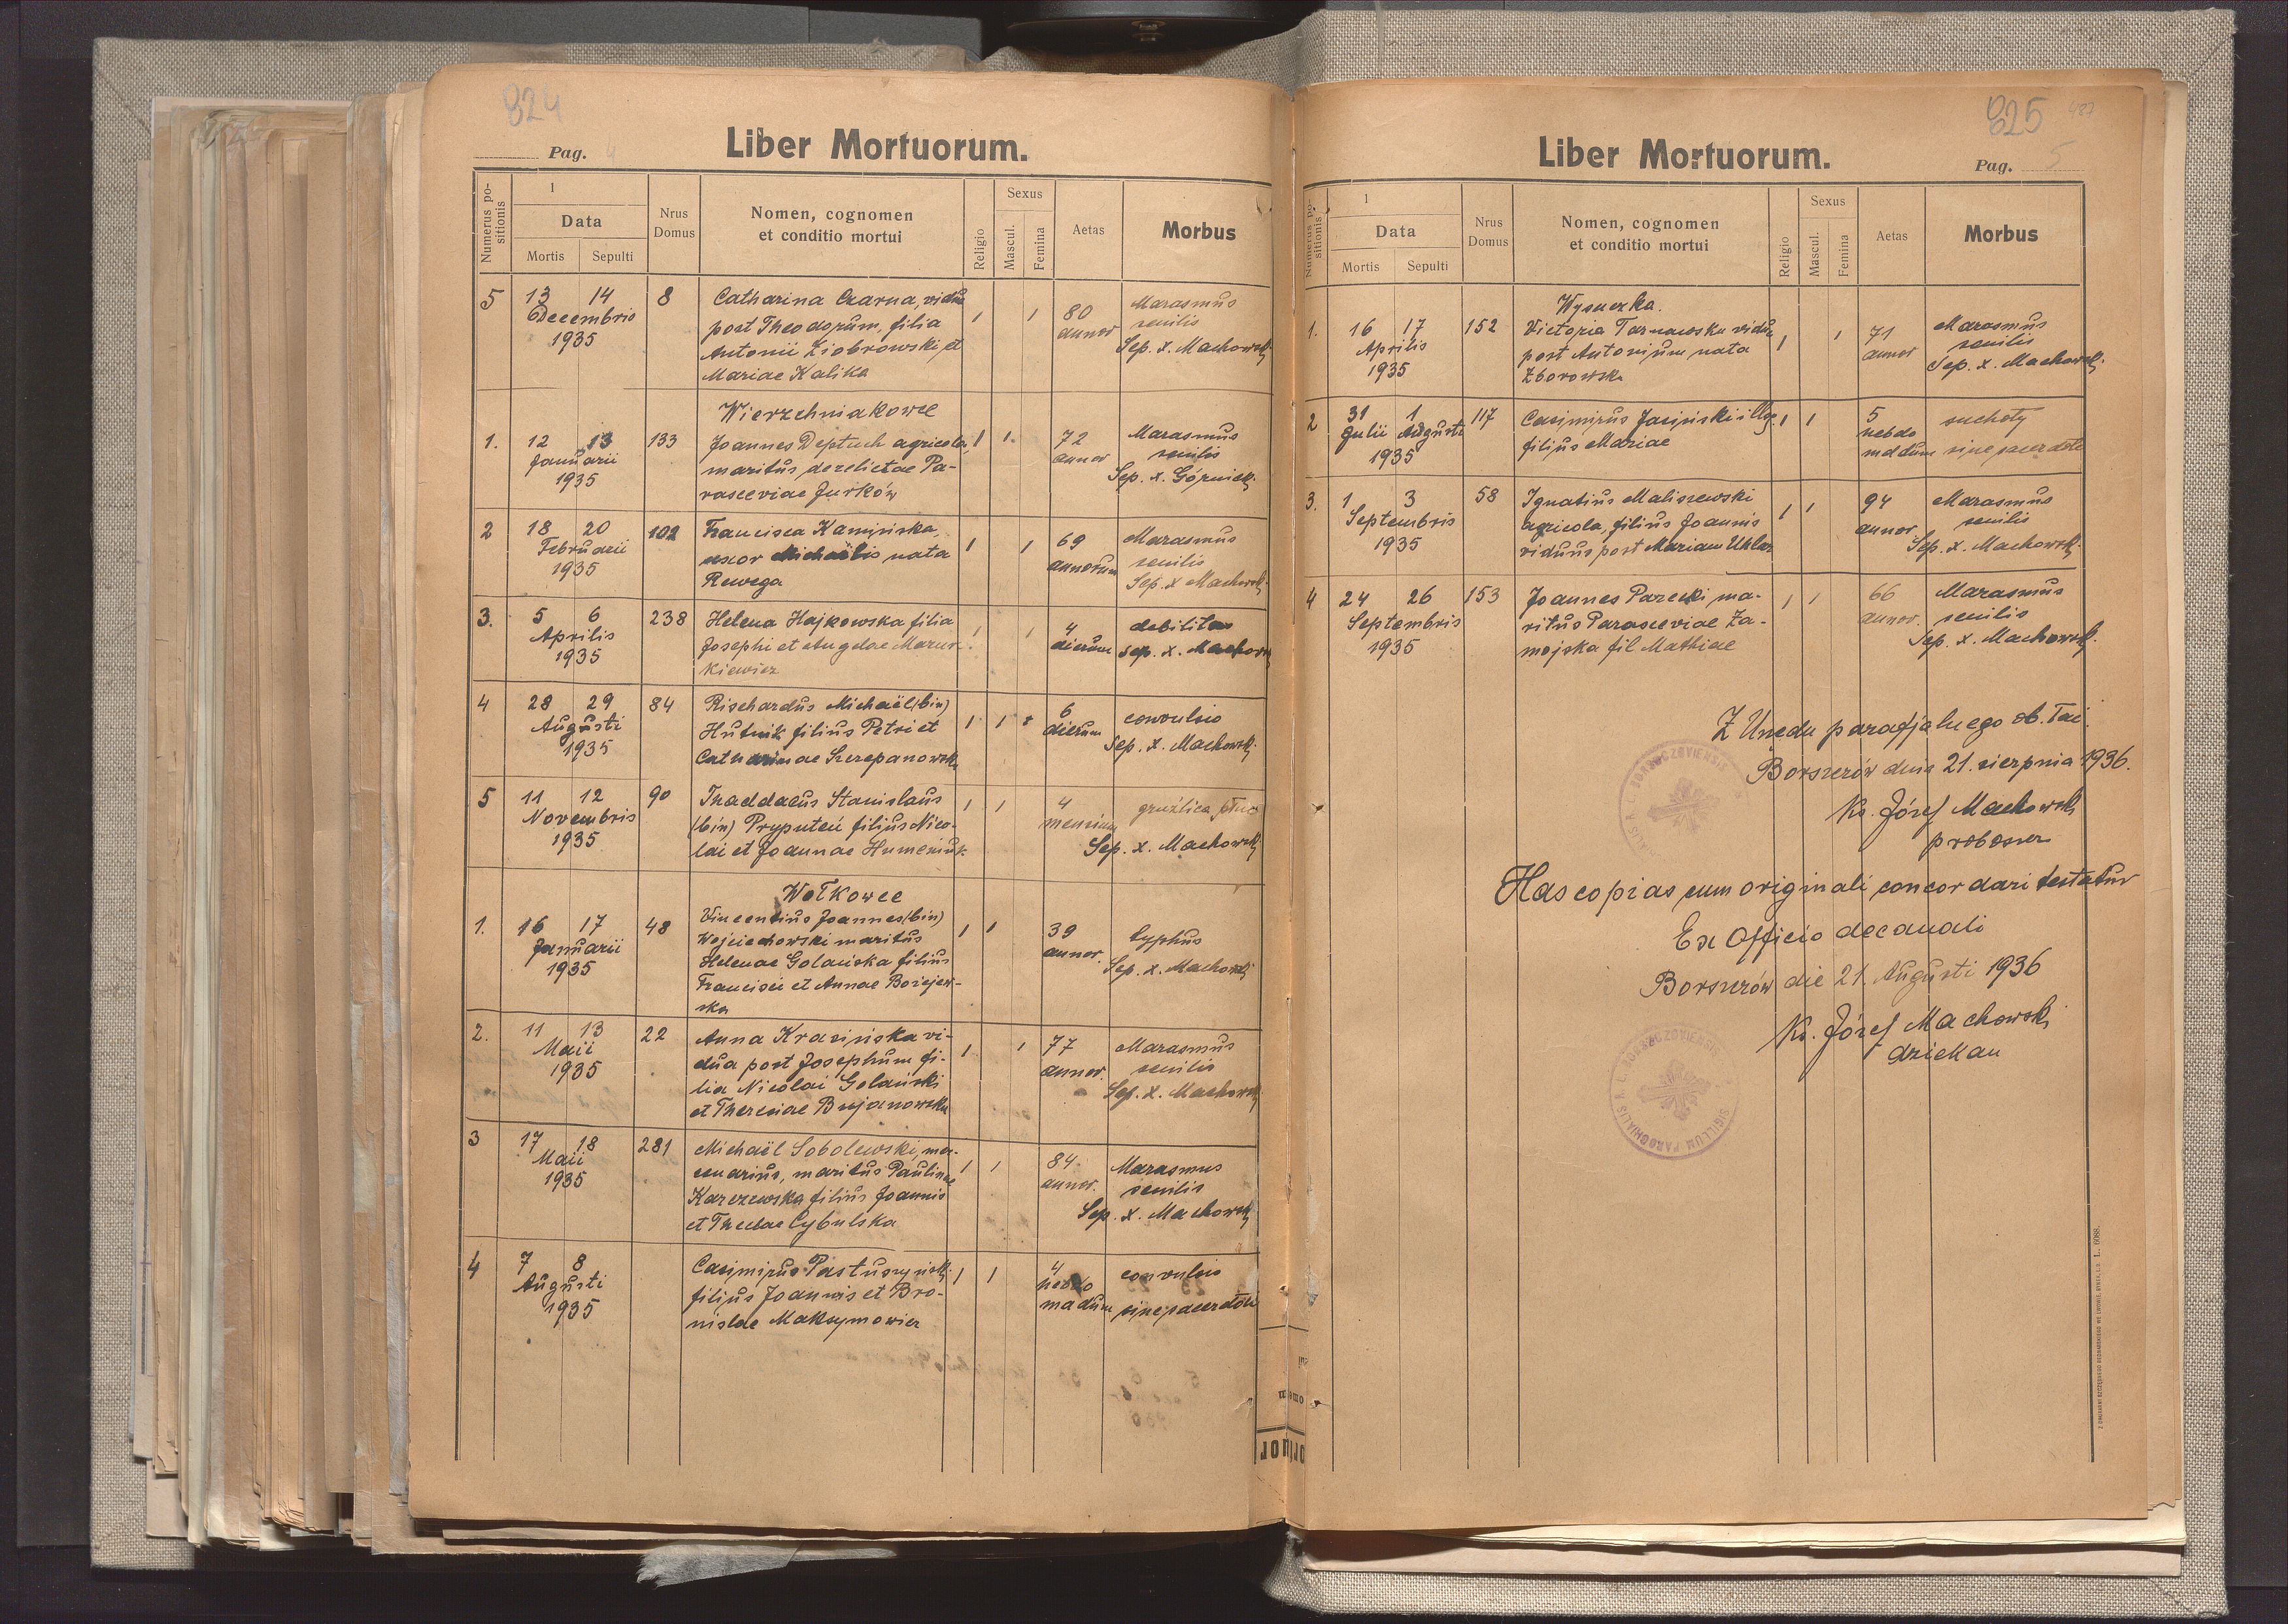 824
Pag. 4
Liber Mortuorum.
Numerus positionis
1
Data
Mortis Sepulti
Nrus Domus
Nomen, cognomen
et conditio mortui
Religio
Sexus
Mascul.
Femina
Aetas
Morbus
5 13 14 8 Catharina Czarna, vidua
Decembris post Theodorum, filia 1 1 80 Marasmus
1935 Antonii Ziobrowski et annor senilis
Mariae Kalika Sep. x. Machowski
Wierzchniakowce
1. 12 13 133 Joannes Deptuch agricola, 1 1. 72 Marasmus
Januarii maritus derelictae Pa- annor senilis
1935 rasceviae Jurków Sep. x. Górnick.
2 18 20 102 Francisca Kamińska,
Februarii uxor Michaëlis nata 1 1 69 Marasmus
1935 Rewega annorum senilis
Sep. x Machowsk.
3. 5 6 238 Helena Hajkowska filia
Aprilis Josephi et Angelae 1 1 4 debilitas
1935 kiewicz dierum sep. x. Machowsk
4 28 29 84 Rischardus Michaël (bin)
Augusti Hutnik filius Petri et 1 1 6 convulsio
1935 Catharinae Szczepanowska dierum Sep. x. Machowsk.
5 11 12 90 Thaddaeus Stanislaus
Novembris (bin) Pryputen filius Nico- 1 1 4 gruźlica płuc
1935 lai et Joannae Humeniuk mensium Sep. x. Machowsk
Wołkowce
1. 16 17 48 Vincentius Joannes (bin)
Januarii Wojciechowski maritus 1 1 39 typhus
1935 Helenae Golańska filius annor. Sep. x. Machowski
Francisci et Annae Bożejew-
ska
2. 11 13 22 Anna Krasińska vi-
Maii dua post Josephum fi- 1 1 77 Marasmus
1935 lia Nicolai Golański annor. senilis
et Theresiae Bujanowska Sep. x. Machowsk
3 17 18 281 Michaël Sobolewski, mer-
Maii cenarius, maritus Paulinae 1 1 84 Marasmus
1935 Karczewska filius Joannis annor. senilis
et Theclae Cybulska Sep. x. Machowsk
4 7 8 Casimirus Pastuszyński 1 1 4 convulsio
Augusti filius Joannis et Bro- hebdo
1935 nislae Maksymowicz madum sine sacerdote
825
487
Liber Mortuorum.
Pag. 5
Numerus positionis
1
Data
Mortis Sepulti
Nrus Domus
Nomen, cognomen
et conditio mortui
Religio
Sexus
Mascul.
Femina
Aetas
Morbus
Wysuczka.
1. 16 17 152 Victoria Tarnawska vidua 1 1 71 Marasmus
Aprilis post Antonium nata annor senilis
1935 Zborowska Sep. x. Machowsk.
2 31 1 117 Casimirus Jasiński illeg. 1 1 5 suchoty
Julii Augusti filius Mariae hebdo
1935 madum sine sacerdote
3. 1 3 58 Ignatius Maliszewski 1 1 94 Marasmus
Septembris agricola, filius Joannis annor. senilis
1935 viduus post Mariam Sep. x. Machowsk.
4 24 26 153 Joannes Parecki ma- 1 1 66 Marasmus
Septembris ritus Parasceviae Za- annor. senilis
1935 mojska fil Mathiae Sep. x. Machowsk.
Z Urzędu parafjalnego ob. łac.
Borszczów dnia 21. sierpnia 1936.
Ks. Józef Machowski
proboszcz
Has copias cum originali concordari testatur
Ex Officio decanali
Borszczów die 21. Augusti 1936
Ks. Józef Machowski
dziekan
SIGILLUM PAROCHIALIS R. L. BORSZCZOVIENSIS